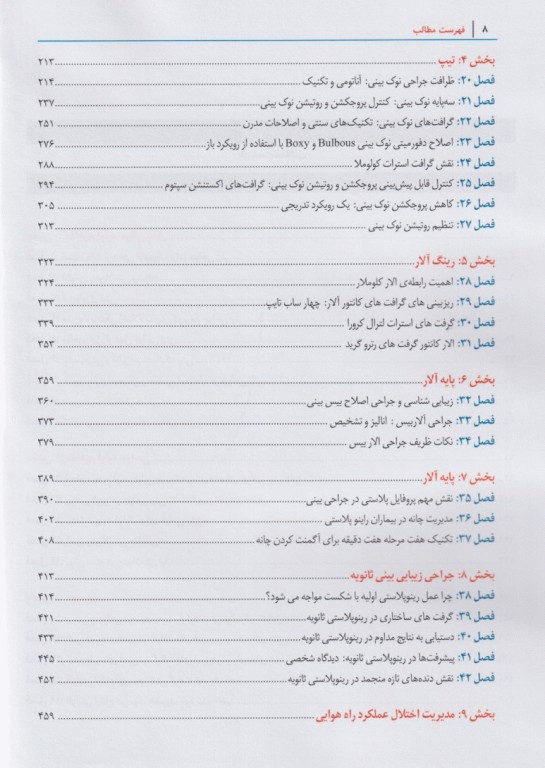 ۸ | فهرست مطالب
بخش ۴: تیپ ........ ۲۱۳
فصل ۲۰: ظرافت جراحی نوک بینی: آناتومی و تکنیک ........ ۲۱۴
فصل ۲۱: سه‌پایه نوک بینی: کنترل پروجکشن و روتیشن نوک بینی ........ ۲۳۷
فصل ۲۲: گرافت‌های نوک بینی: تکنیک‌های سنتی و اصلاحات مدرن ........ ۲۵۱
فصل ۲۳: اصلاح دفورمیتی نوک بینی Bulbous و Boxy با استفاده از رویکرد باز ........ ۲۷۶
فصل ۲۴: نقش گرافت استرات کولوملا ........ ۲۸۸
فصل ۲۵: کنترل قابل پیش‌بینی پروجکشن و روتیشن نوک بینی: گرافت‌های اکستنشن سپتوم ........ ۲۹۴
فصل ۲۶: کاهش پروجکشن نوک بینی: یک رویکرد تدریجی ........ ۳۰۵
فصل ۲۷: تنظیم روتیشن نوک بینی ........ ۳۱۳
بخش ۵: رینگ آلار ........ ۳۲۳
فصل ۲۸: اهمیت رابطه‌ی الار کلوملار ........ ۳۲۴
فصل ۲۹: ریزبینی های گرافت های کانتور آلار: چهار ساب تایپ ........ ۳۳۳
فصل ۳۰: گرفت های استرات لترال کرورا ........ ۳۳۹
فصل ۳۱: الار کانتور گرفت های رترو گرید ........ ۳۵۳
بخش ۶: پایه آلار ........ ۳۵۹
فصل ۳۲: زیبایی شناسی و جراحی اصلاح بیس بینی ........ ۳۶۰
فصل ۳۳: جراحی آلاربیس : انالیز و تشخیص ........ ۳۷۳
فصل ۳۴: نکات ظریف جراحی الار بیس ........ ۳۷۹
بخش ۷: پایه آلار ........ ۳۸۹
فصل ۳۵: نقش مهم پروفایل پلاستی در جراحی بینی ........ ۳۹۰
فصل ۳۶: مدیریت چانه در بیماران راینو پلاستی ........ ۴۰۲
فصل ۳۷: تکنیک هفت مرحله هفت دقیقه برای آگمنت کردن چانه ........ ۴۰۸
بخش ۸: جراحی زیبایی بینی ثانویه ........ ۴۱۳
فصل ۳۸: چرا عمل رینوپلاستی اولیه با شکست مواجه می شود؟ ........ ۴۱۴
فصل ۳۹: گرفت های ساختاری در رینوپلاستی ثانویه ........ ۴۲۱
فصل ۴۰: دستیابی به نتایج مداوم در رینوپلاستی ثانویه ........ ۴۳۳
فصل ۴۱: پیشرفت‌ها در رینوپلاستی ثانویه: دیدگاه شخصی ........ ۴۴۵
فصل ۴۲: نقش دنده‌های تازه منجمد در رینوپلاستی ثانویه ........ ۴۵۲
بخش ۹: مدیریت اختلال عملکرد راه هوایی ........ ۴۵۹